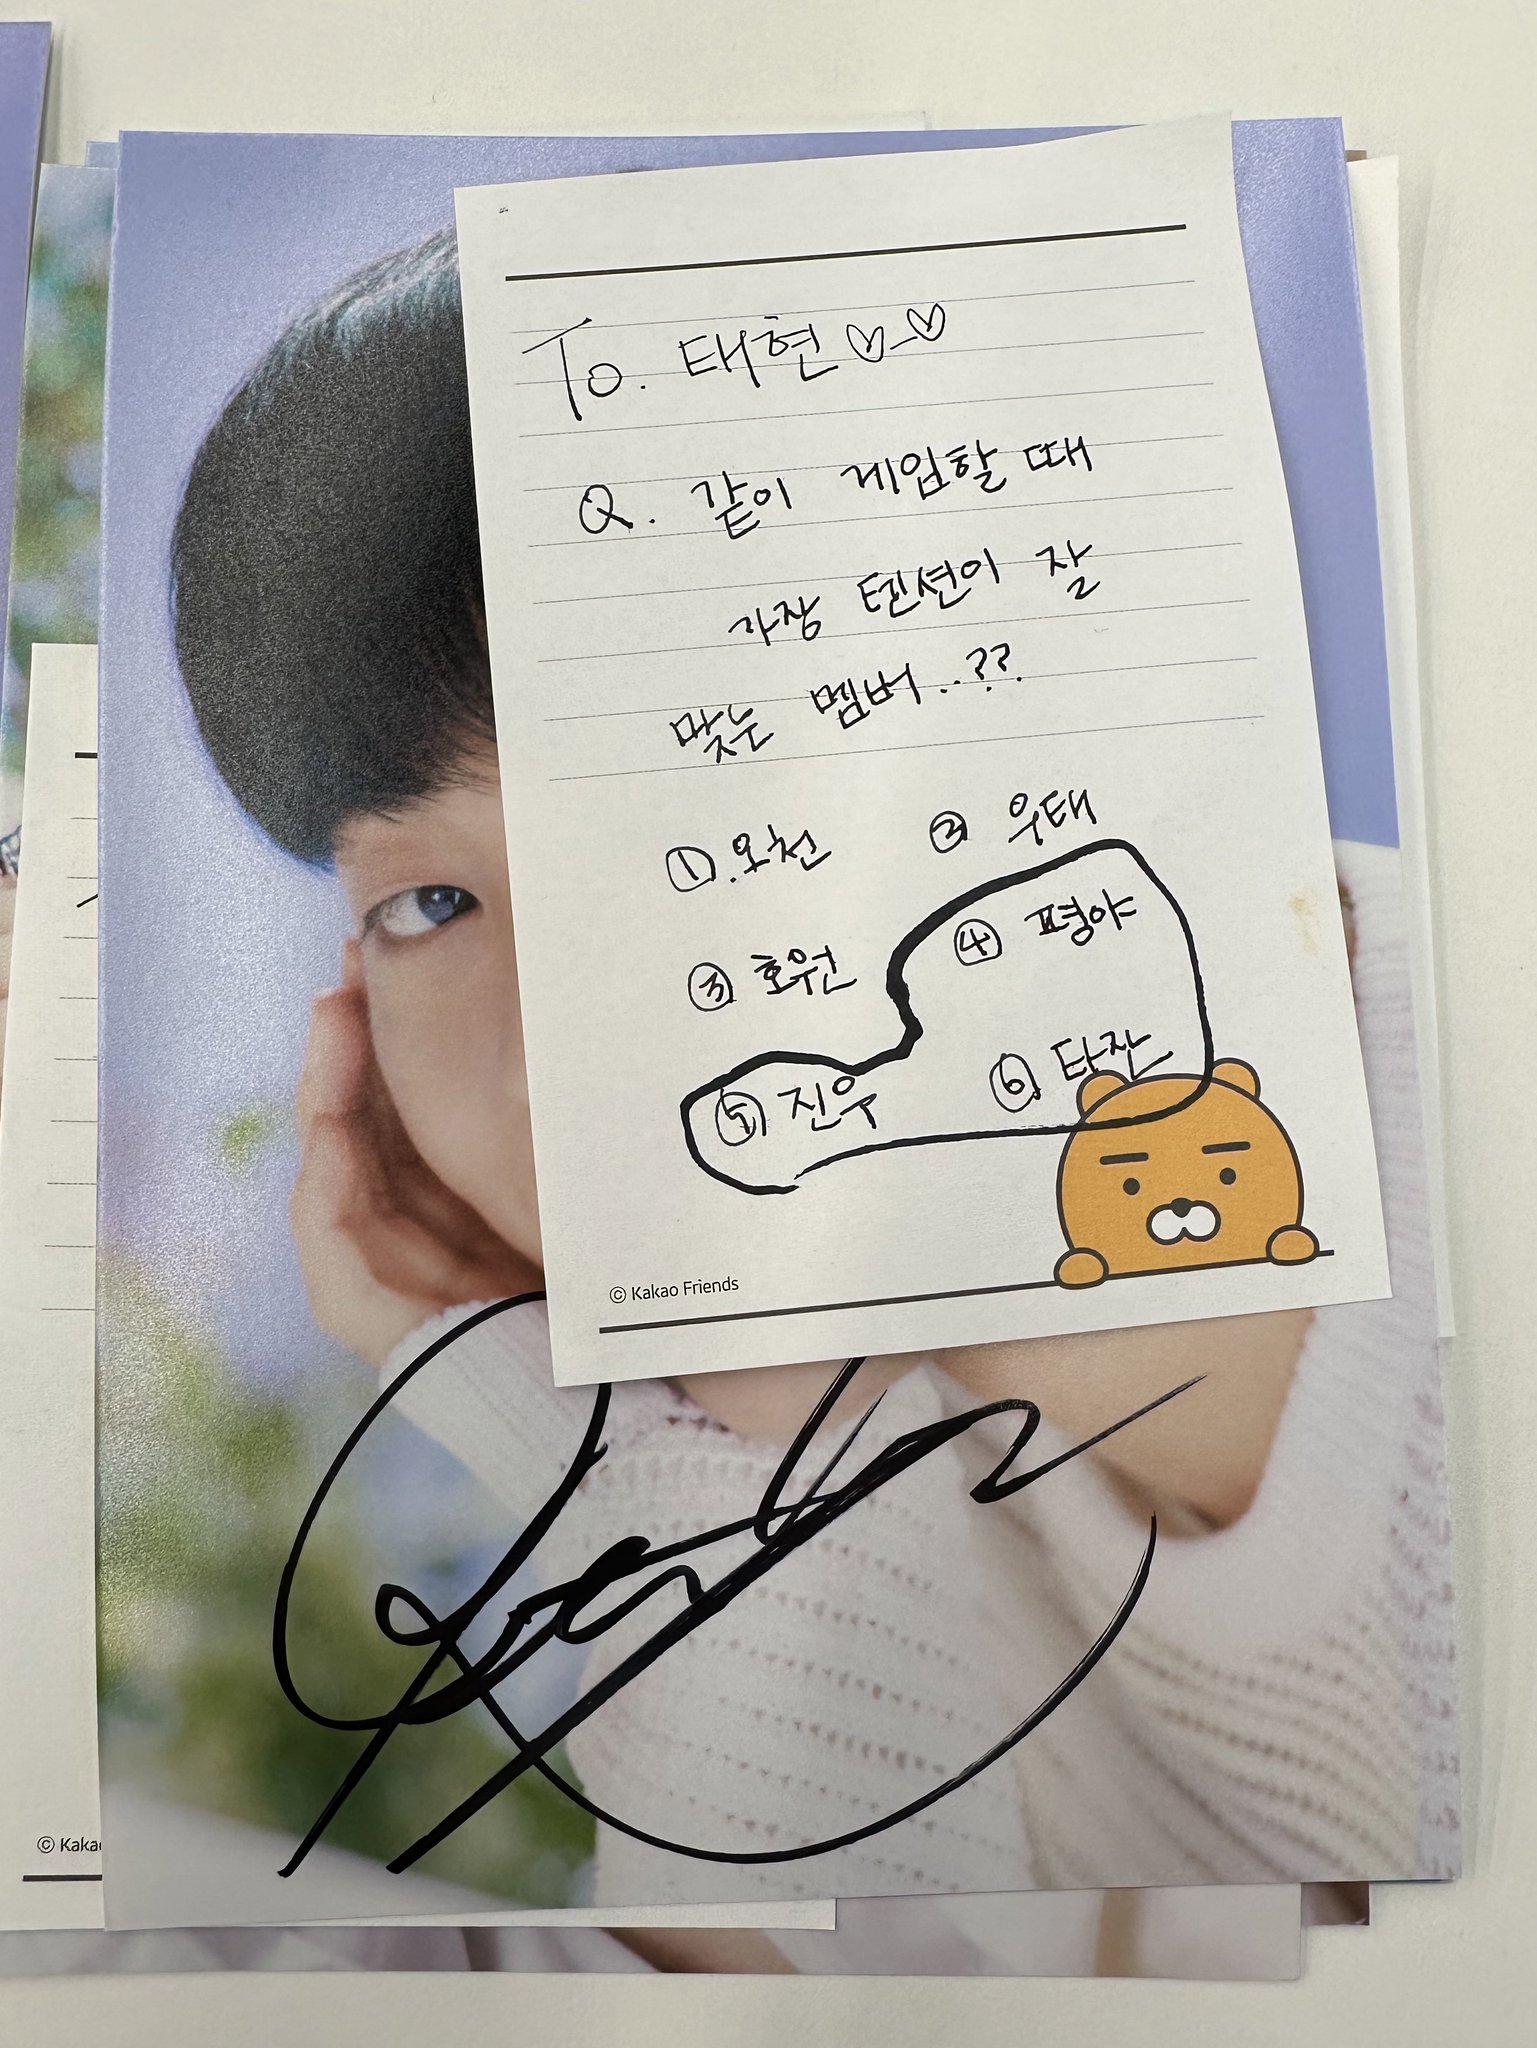 To. 태현♡_♡
Q. 같이 게임할 때
가장 텐션이 잘
맞는 멤버..??
① 오천 ② 우태
③ 호원 ④ 평야
⑤ 진우 ⑥ 타잔
© Kakao Friends
© Kaka